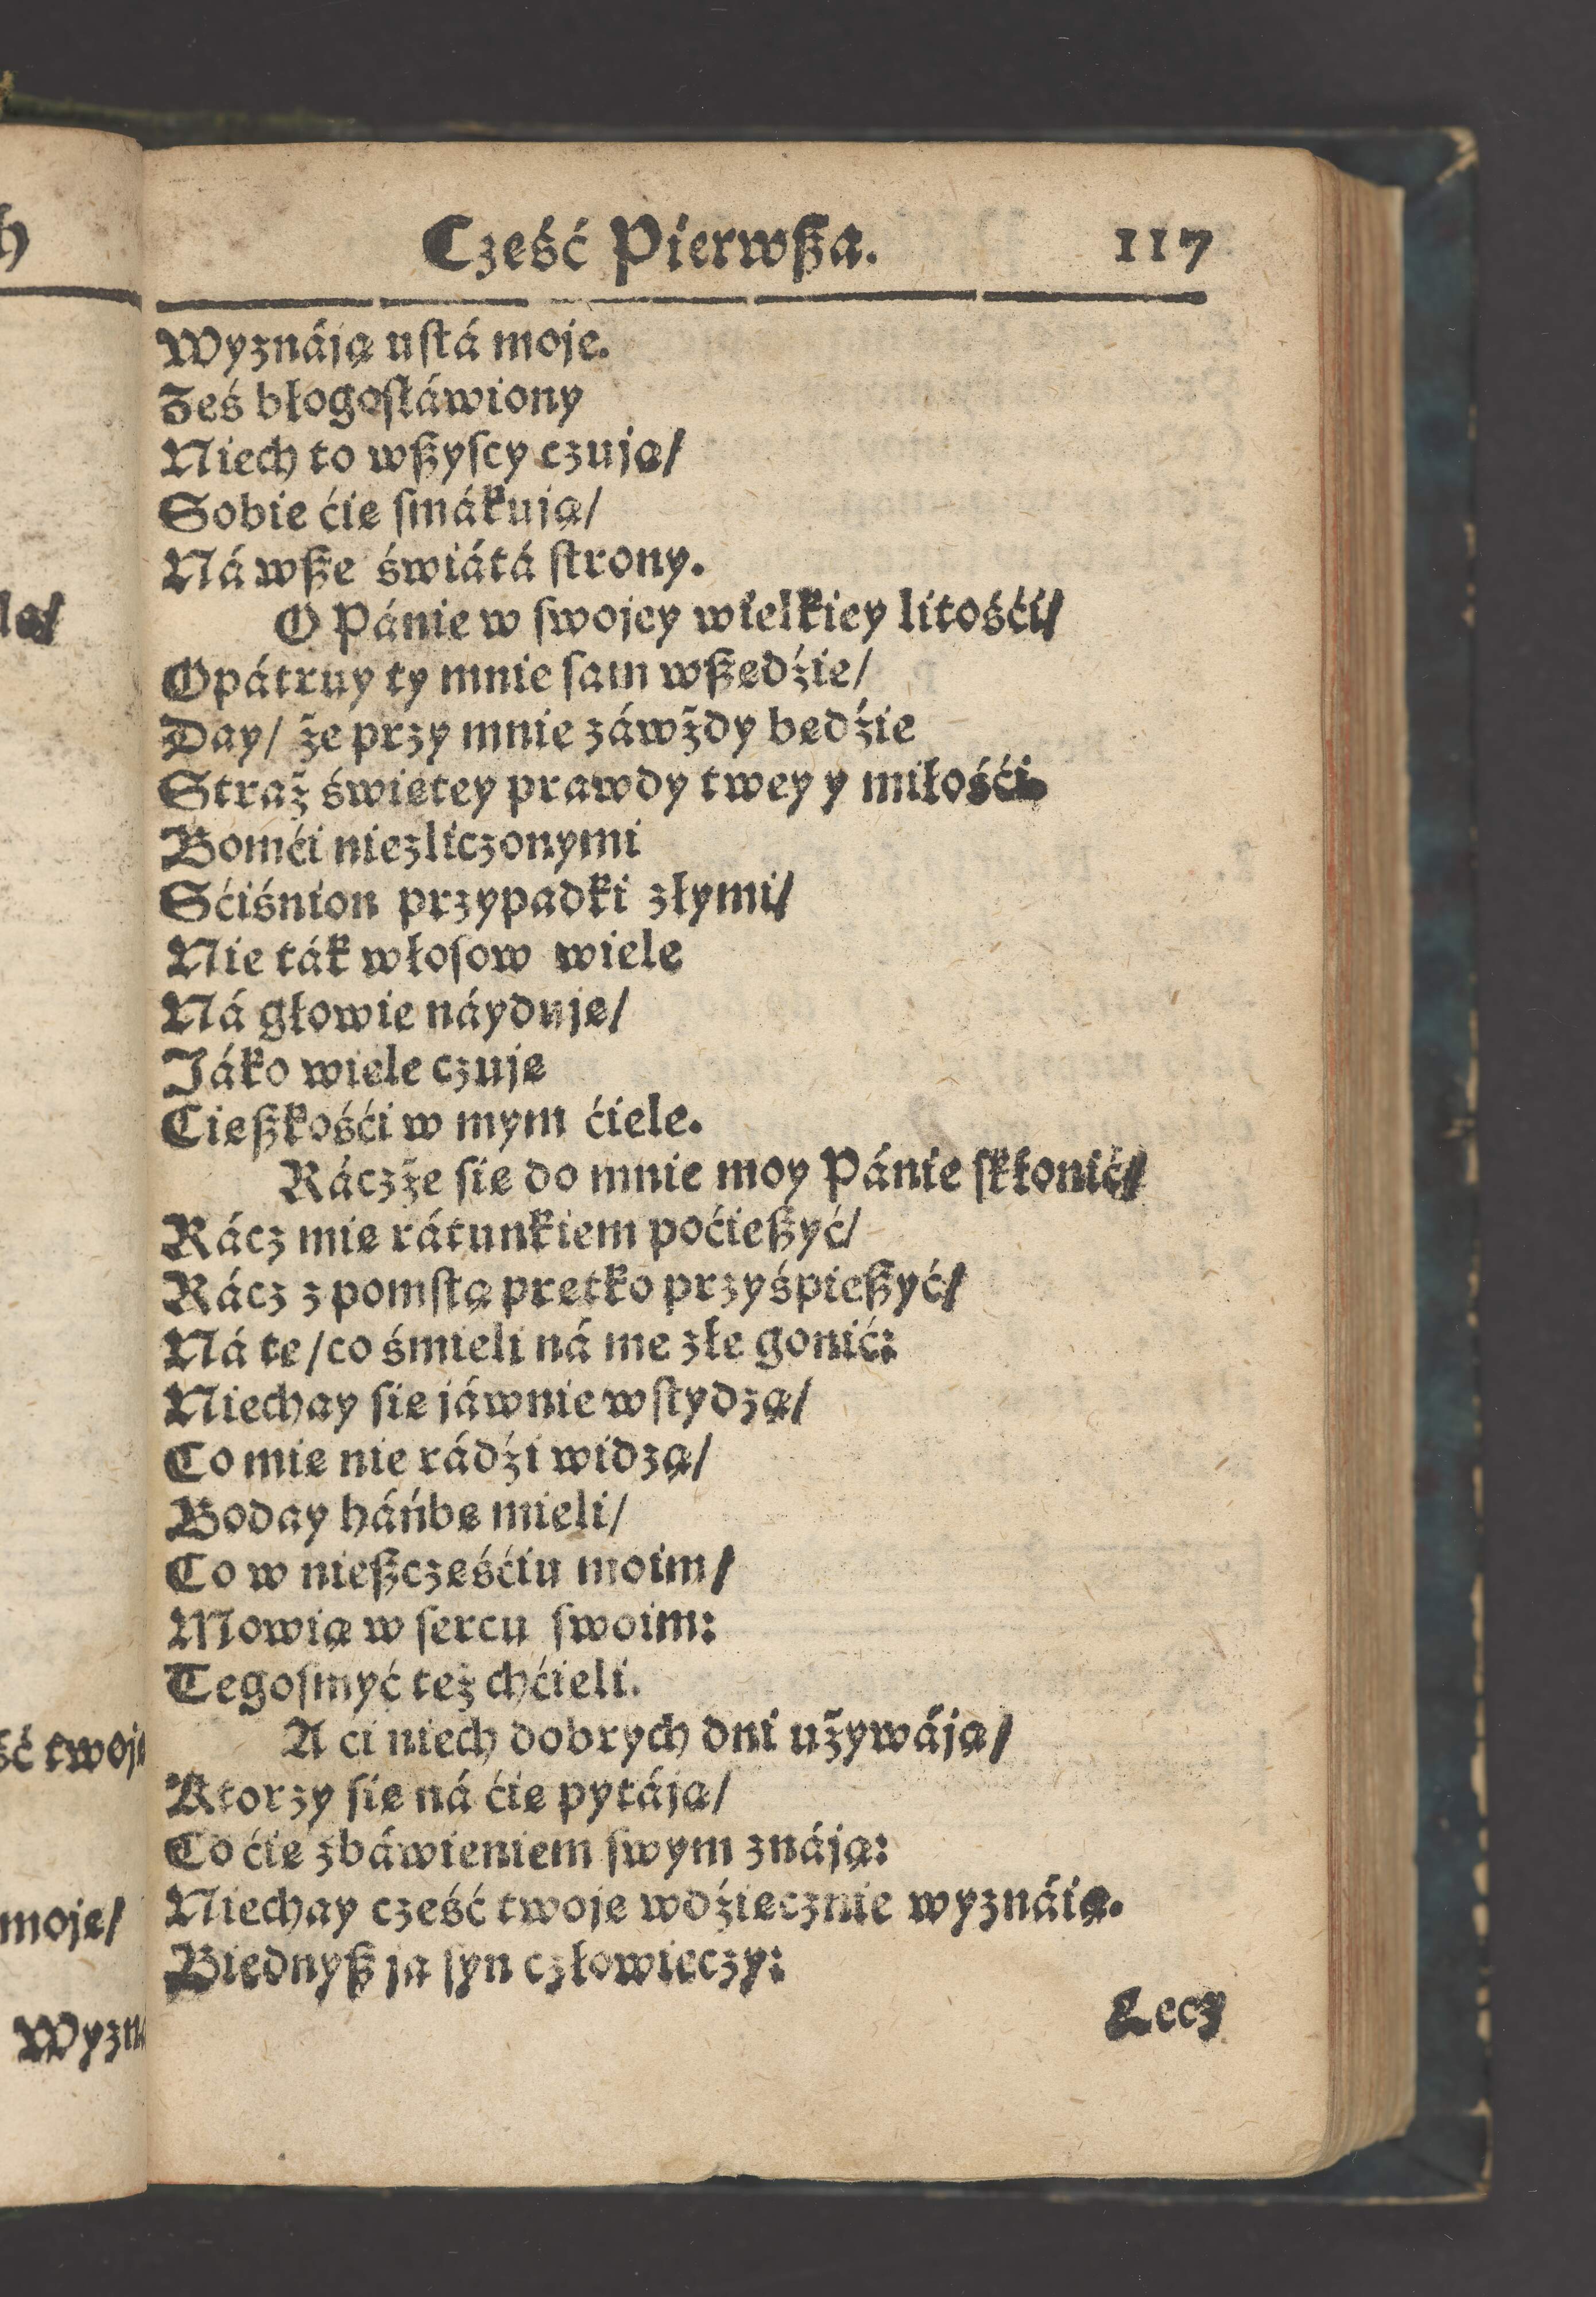 Cześć Pierwßa. 117
Wyznáją uſtá moje.
Żeś błogoſłáwiony
Niech to wßyſcy czują/
Sobie ćię ſmákują/
Ná wße świátá ſtrony.
O Pánie w ſwojey wielkiey litośći/
Opátruy ty mnie ſam wßędźie/
Day/ że przy mnie záwżdy będźie
Straż świętey prawdy twey y miłośći.
Bomći niezliczonymi
Sćiśnion przypadki złymi/
Nie ták włoſow wiele
Ná głowie náyduję/
Jáko wiele czuję
Cięßkośći w mym ćiele.
Ráczże ſię do mnie moy Pánie ſkłonić/
Rácz mię rátunkiem poćießyć/
Rácz z pomſtą prętko przyśpießyć/
Ná te/ co śmieli ná me złe gonić:
Niechay ſię jáwnie wſtydzą/
Co mię nie rádźi widzą/
Boday háńbę mieli/
Co w nießczęśćiu moim/
Mowią w ſercu ſwoim:
Tegoſmyć też chćieli.
A ci niech dobrych dni używáją/
Ktorzy ſię ná ćię pytáją/
Co ćię zbáwieniem ſwym znáją:
Niechay cześć twoję wdźięcznie wyznáią.
Biednyß ja ſyn człowieczy:
Lecz
ść twoję
moje/
Wyzná